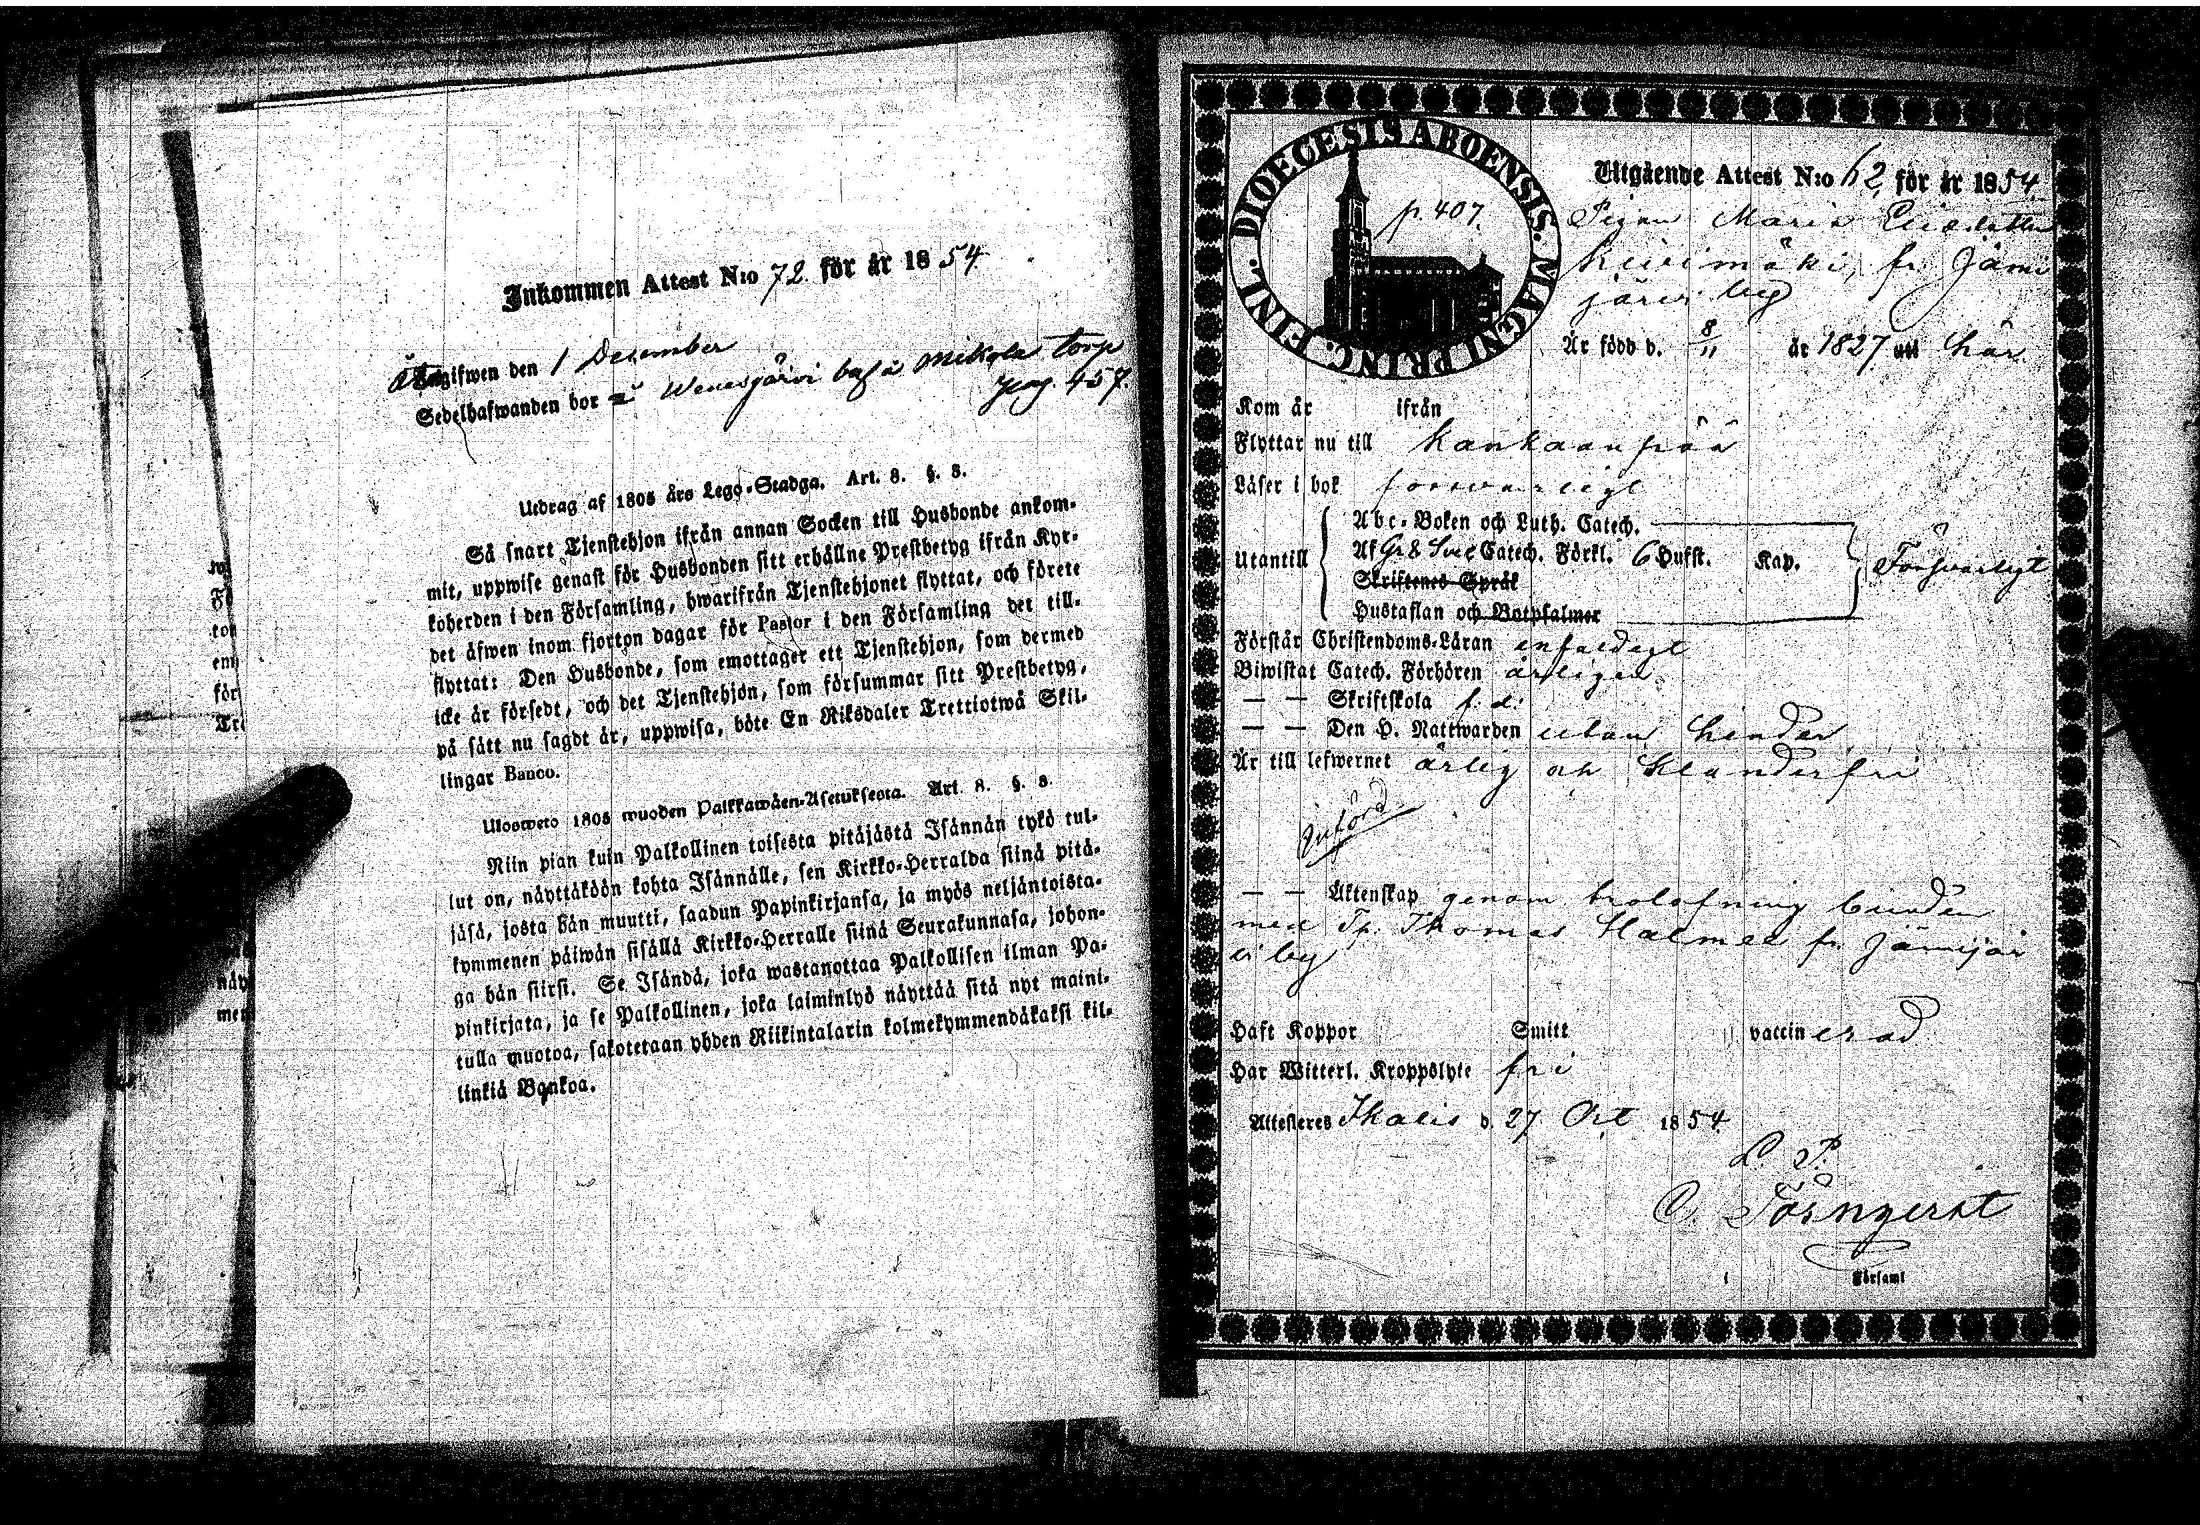 Inkommen Attest N:o 72. för år 1854
gifwen den 1 December
Sedelhafwanden bor Wenesjärvi Mikola torp
pag. 457.
Utdrag af 1805 års Lego-Stadga. Art. 8. §. 8.
Så snart Tjenstehjon ifrån annan Socken till Husbonde ankom-
mit, uppwise genast för Husbonden sitt erhållne Prestbetyg ifrån Kyr-
koherden i den Församling, hwarifrån Tjenstehjonet flyttat, och förete
det äfwen inom fjorton dagar för Pastor i den Församling det till-
flyttat: Den Husbonde, som emottager ett Tjenstehjon, som dermed
icke är försedt, och det Tjenstehjon, som försummar sitt Prestbetyg,
på sätt nu sagdt är, uppwisa, böte En Riksdaler Trettiotwå Skil-
lingar Banco.
Ulosweto 1805 wuoden Palkkawäen-Asetuksesta. Art. 8. §. 8.
Niin pian kuin Palkollinen toisesta pitäjästä Isännän tykö tul-
lut on, näyttäköön kohta Isännälle, sen Kirkko-Herralda siinä pitä-
jäsä, josta hän muutti, saadun Papinkirjansa, ja myös neljäntoista-
kymmenen päiwän sisällä Kirkko-Herralle siinä Seurakunnasa, johon-
ga hän siirsi. Se Isändä, joka wastanottaa Palkollisen ilman Pa-
pinkirjata, ja se Palkollinen, joka laiminlyö näyttää sitä nyt maini-
tulla muotoa, sakotetaan yhden Riikintalarin kolmekymmendäkaksi kil-
linkiä Bankoa.
DIOECESIS ABOENSIS. MAGNI PRINC. FINL.
p. 407.
Utgående Attest N:o 62 för år 1854
Pigan Maria Elisdotter
Kuusimäki, fr. Jämi
järvi by
Är född d. 8/11 år 1827 uti här.
Kom år ifrån
Flyttar nu till Kankaanpää
Läser i bok försvarligt
Utantill
Abc-Boken och Luth. Catech.
Af Gr & Sveb Catech. Förkl. 6 Hufst. Kap.
Skriftenes Språk
Hustaflan och Botpsalmer
Försvarligt
Förstår Christendoms-Läran enfaldigt
Biwistat Catech. Förhören årligen
— — Skriftskola f. d.
— — Den H. Nattwarden utan hinder
Är till lefwernet ärlig och klanderfri
Införd
— — Äktenskap genom trolofning bunden
med Tp. Thomas Halmes fr. Jämijär
vi by
Haft Koppor Smitt vaccinerad
Har Witterl. Kroppslyte fri
Attesteres Ikalis d. 27 Oct 1854
C. Törnqvist
i Församl